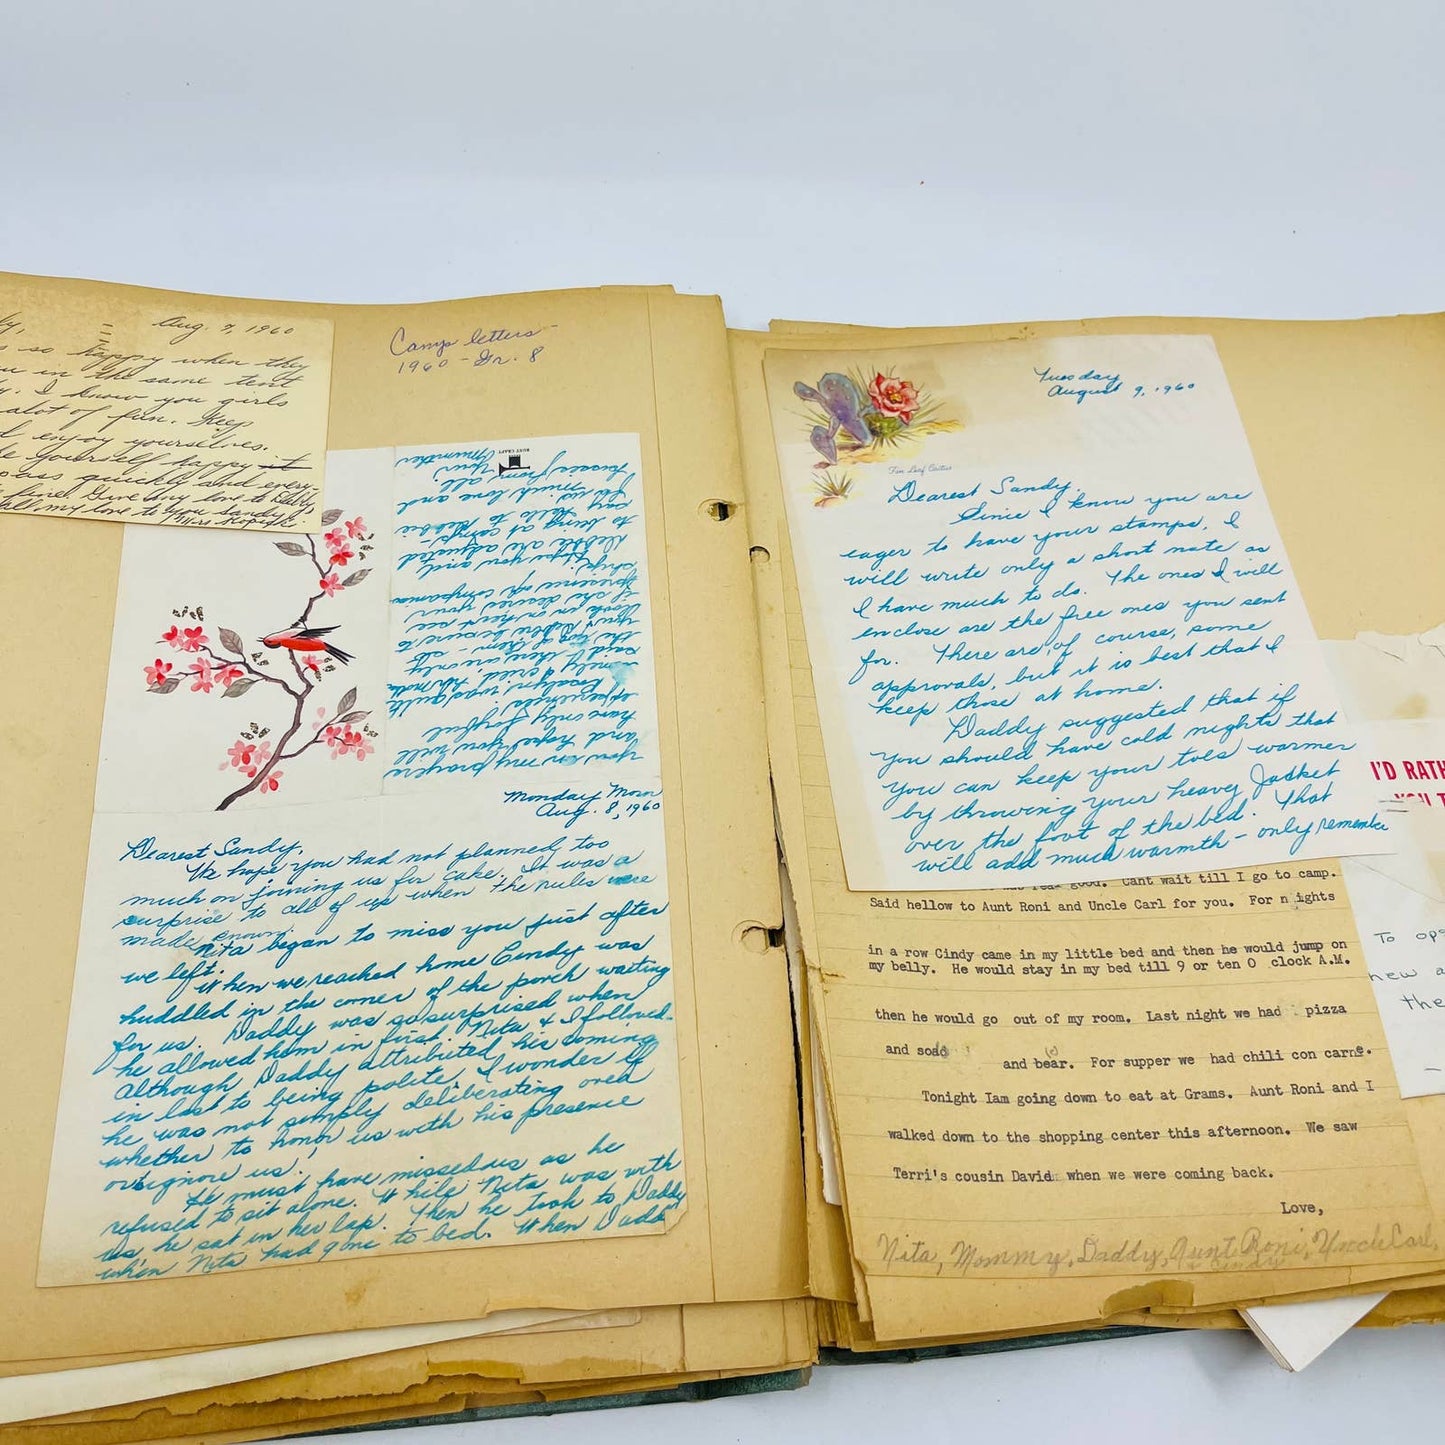 Aug. 9, 1960
so happy when they
in the same tent
I know you girls
alot of fun. Keep
enjoy yourselves.
yourself happy it
pass quickly and every-
fine. Give my love to Debby,
all my love to you Sandy.
Camp letters
1960 - Gr. 8
you in my prayers
and hope you will
have only joyful
experiences.
Rosalyn was quite
lonely & cried
said if there were only
the two of them
you & Debbie be sure to
look in here to see
if she desires your
presence or companion-
ship. Hope you and
Debbie are adjusted
to being at camp -
say hello to Debbie
for us. Much love and
kisses from all
Your
Mumther
RUST CRAFT
Monday Morn
Aug. 8, 1960
Dearest Sandy,
We hope you had not planned too
much on joining us for cake. It was a
surprise to all of us when the rules were
made known.
Nita began to miss you just after
we left.
When we reached home Cindy was
huddled in the corner of the porch waiting
for us. Daddy was so surprised when
he allowed him in first. Nita & I followed.
Although Daddy attributed his coming
in last to being polite, I wonder if
he was not simply deliberating over
whether to honor us with his presence
or ignore us!
He must have missed us as he
refused to sit alone. While Nita was with
us he sat in her lap. Then he took to Daddy
when Nita had gone to bed. When Dadd
Tuesday
August 9, 1960
Fan Leaf Cactus
Dearest Sandy,
Since I know you are
eager to have your stamps, I
will write only a short note as
I have much to do. The ones I will
enclose are the free ones you sent
for. There are, of course, some
approvals, but it is best that I
keep those at home.
Daddy suggested that if
you should have cold nights that
you can keep your toes warmer
by throwing your heavy Jacket
over the foot of the bed. That
will add much warmth - only remember
good. Cant wait till I go to camp.
Said hellow to Aunt Roni and Uncle Carl for you. For n ights
in a row Cindy came in my little bed and then he would jump on
my belly. He would stay in my bed till 9 or ten O clock A.M.
then he would go out of my room. Last night we had pizza
and soad and bear. For supper we had chili con carne.
Tonight Iam going down to eat at Grams. Aunt Roni and I
walked down to the shopping center this afternoon. We saw
Terri's cousin David when we were coming back.
Love,
Nita, Mommy, Daddy, Aunt Roni, Uncle Carl,
+ Cindy
I'D RATH
YOU T
To op
new a
the